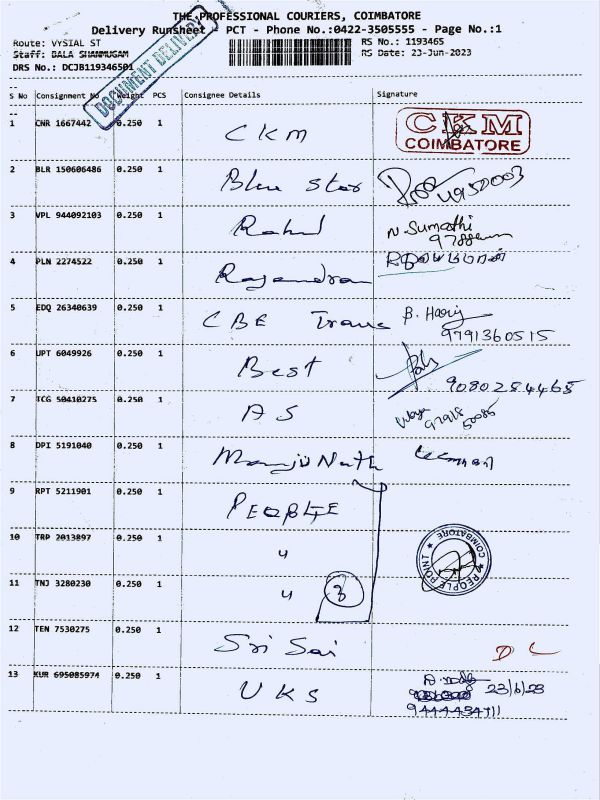 THE PROFESSIONAL COURIERS, COIMBATORE
Delivery Runsheet - PCT - Phone No.:0422-3505555 - Page No.:1
Route: VYSIAL ST RS No.: 1193465
Staff: BALA SHANMUGAM RS Date: 23-Jun-2023
DRS No.: DCJB119346501
DOCUMENT DELIVERY
S No Consignment No Weight PCS Consignee Details Signature
1 CNR 1667442 0.250 1 CKM CKM
COIMBATORE
2 BLR 150606486 0.250 1 Blue Star
3 VPL 944092103 0.250 1 Rahul N. Sumathi
4 PLN 2274522 0.250 1 Rajendran
5 EDQ 26340639 0.250 1 CBE Trans B. Harij
9791360515
6 UPT 6049926 0.250 1 Best
9080284465
7 TCG 50410275 0.250 1 AS
8 DPI 5191040 0.250 1 Manju Nath
9 RPT 5211901 0.250 1 PEOPLE
10 TRP 2013897 0.250 1 "
PEOPLE POINT COIMBATORE
11 TNJ 3280230 0.250 1 " 3
12 TEN 7530275 0.250 1 Sri Sai DL
13 KUR 695085974 0.250 1 UKS 23/6/23